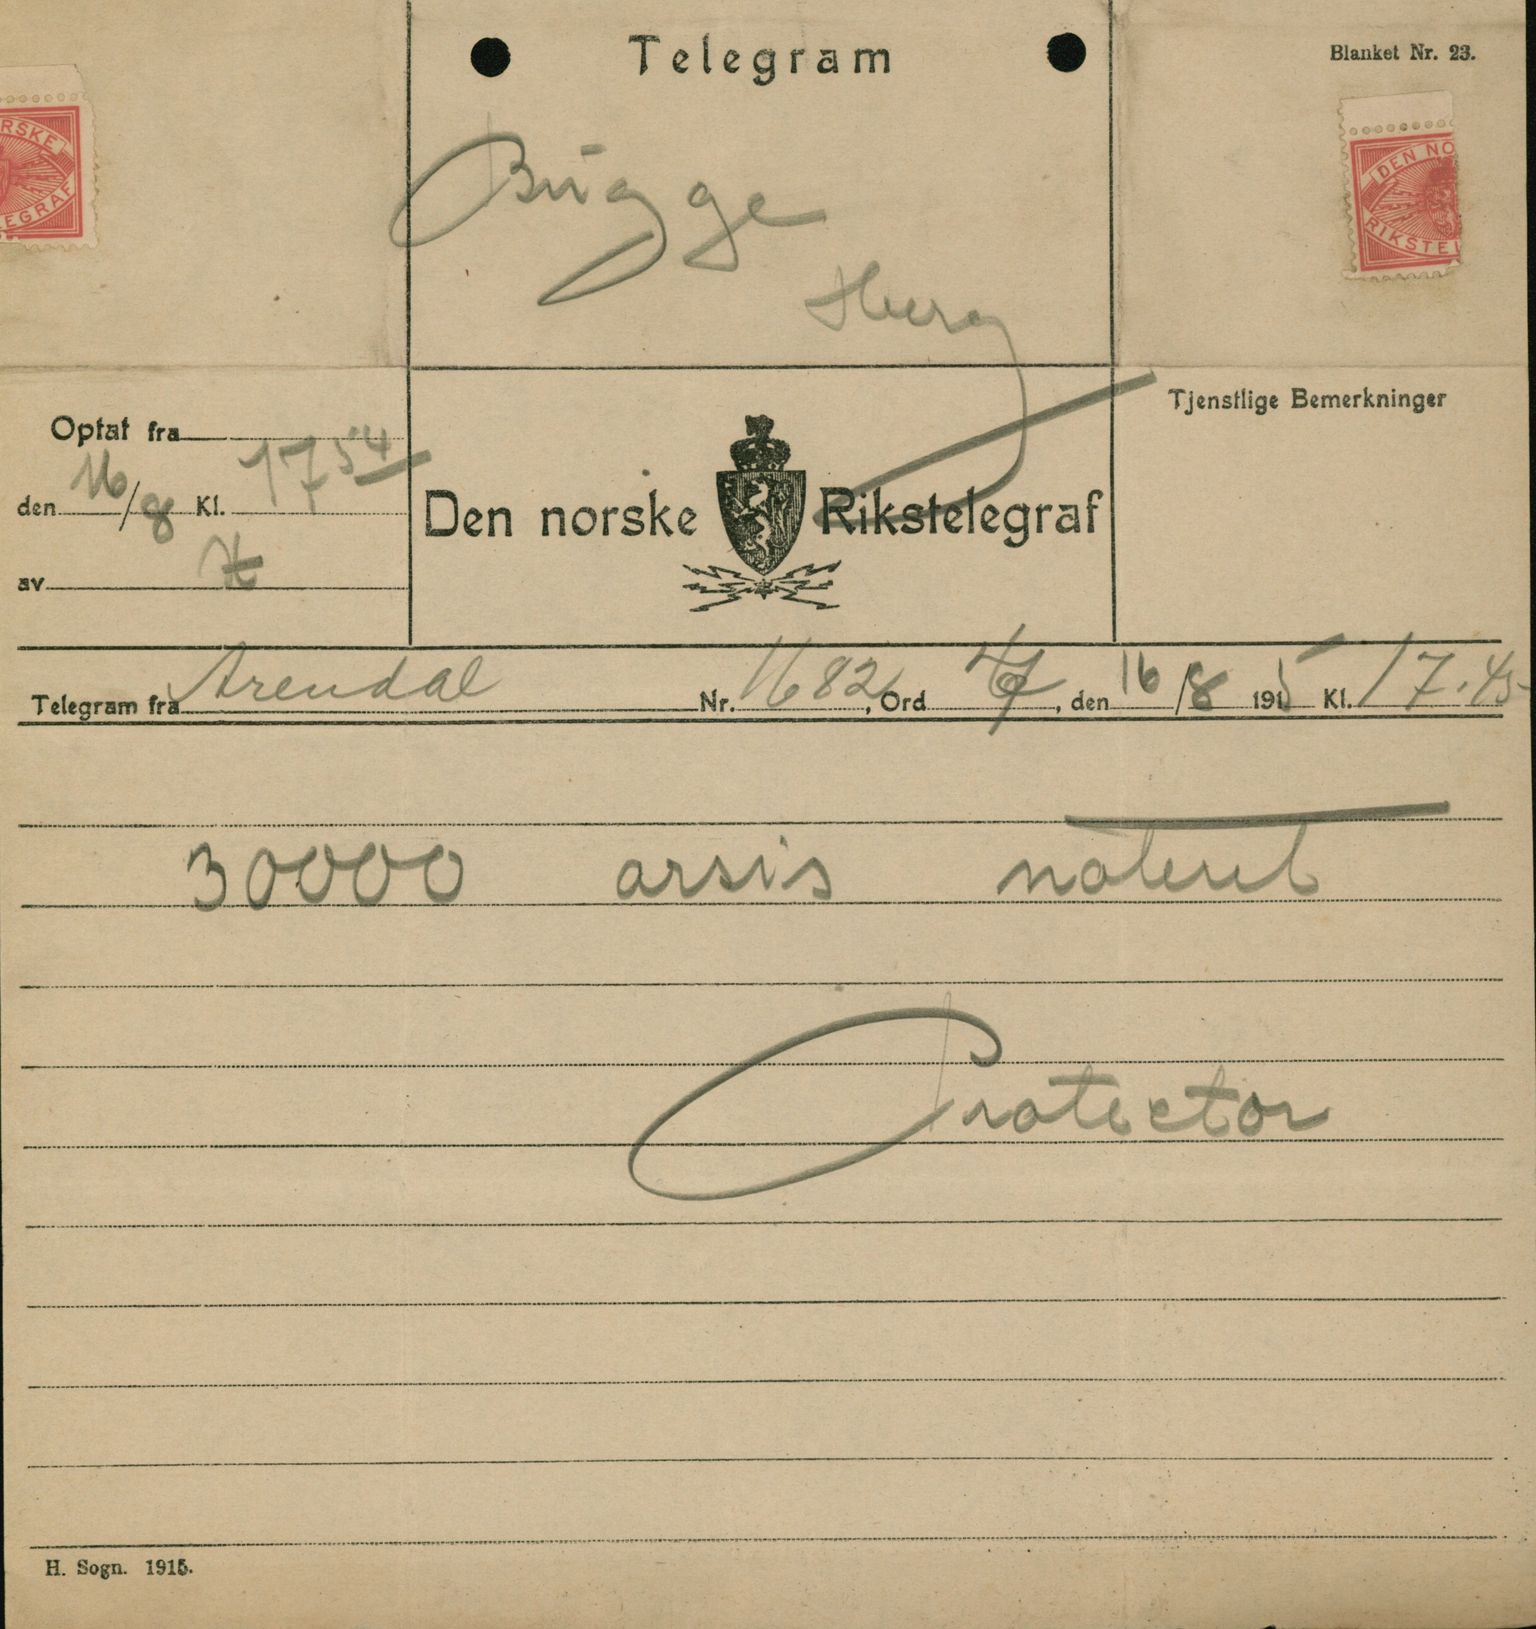 Telegram
Blanket Nr. 23.
RSKE
LEGRAF
DEN NO
RIKSTEL
Bugge
Hberg
Optat fra
den 16/8 Kl. 17 54
av
Den norske Rikstelegraf
Tjenstlige Bemerkninger
Telegram fra Arendal Nr. 1682, Ord , den 16/8 1915 Kl. 17.45
30000 arsis noteret
Protector
H. Sogn. 1915.